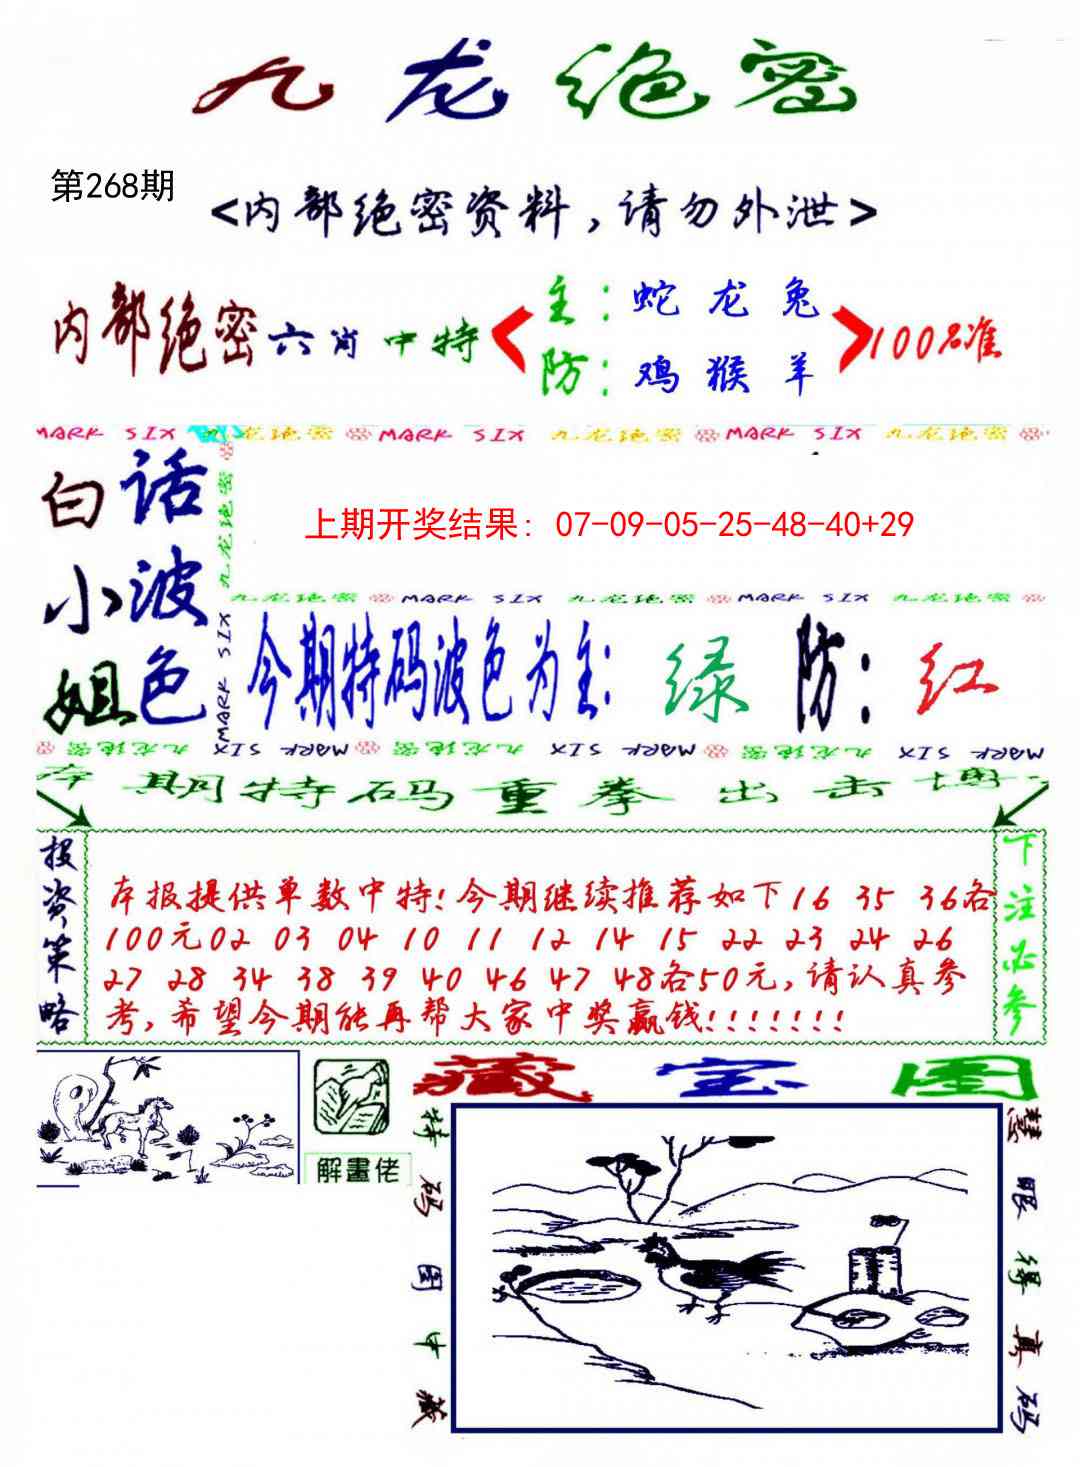 九龙绝密
第268期
<内部绝密资料,请勿外泄>
内部绝密六肖中特
主:蛇 龙 兔
防:鸡 猴 羊
100%准
MARK SIX 九龙绝密 MARK SIX 九龙绝密 MARK SIX 九龙绝密
白小姐
话波色
九龙绝密 MARK SIX
上期开奖结果: 07-09-05-25-48-40+29
九龙绝密 MARK SIX 九龙绝密 MARK SIX 九龙绝密
今期特码波色为主: 绿 防: 红
九龙绝密 MARK SIX 九龙绝密 MARK SIX 九龙绝密 MARK SIX
本期特码重拳出击博
投资策略
本报提供单数中特!今期继续推荐如下16 35 36各
100元02 03 04 10 11 12 14 15 22 23 24 26
27 28 34 38 39 40 46 47 48各50元,请认真参
考,希望今期能再帮大家中奖赢钱!!!!!!!
下注必参
解畫佬
藏宝图
特码图中藏
慧眼得真码